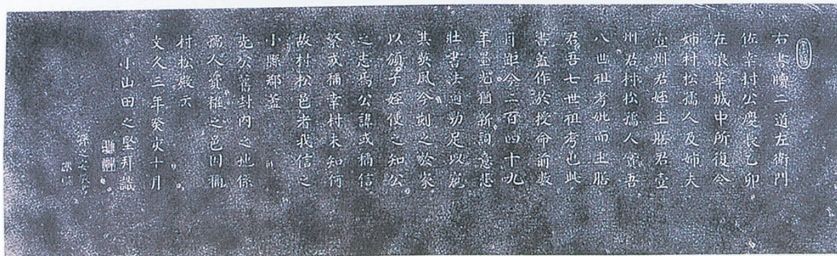 右書牘二道左衛門
佐幸村公慶長乙卯
在浪華城中所復令
姉村松孺人及姉夫
壹州君姪主膳君壹
州君村松孺人實吾
八世祖考妣而主膳
君吾七世祖考也此
書蓋作於授命前數
月距今二百四十九
年墨光猶新詞意悲
壯書法遒勁足以窺
其英風今刻之於家
以頒子姪使之知公
之忠焉公諱或稱信
繁或稱幸村未知何
故村松邑者我信之
小縣郡並
先公舊封内之地係
孺人資糧之邑因稱
村松殿云
文久三年癸亥十月
小山田之堅拜識